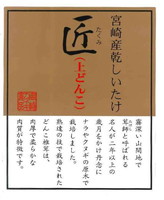 宮崎産乾しいたけ
たくみ
匠
(上どんこ)
霧深い山間地で
茸師と呼ばれる
名人が二年以上の
歳月をかけ丹念に
ナラやクヌギの原木で
栽培しました。
熟達の技で栽培された
どんこ椎茸は、
肉厚で柔らかな
肉質が特徴です。